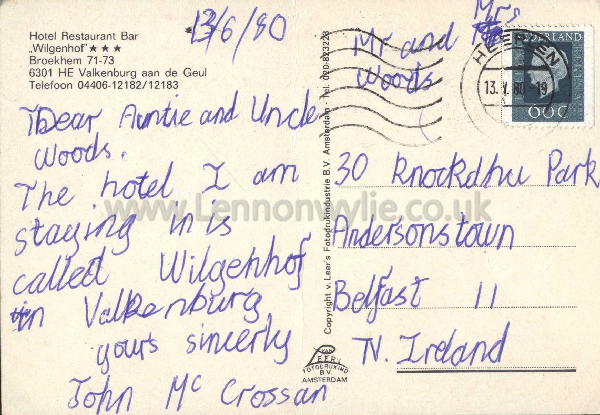 Hotel Restaurant Bar
„Wilgenhof" ★★★
Broekhem 71-73
6301 HE Valkenburg aan de Geul
Telefoon 04406-12182/12183
13/6/80
Dear Auntie and Uncle
Woods.
The hotel I am
staying in is
called Wilgehhof
in Valkenburg
yours sincerly
John Mc Crossan
Copyright v. Leer's Fotodrukindustrie B.V. Amsterdam - Tel. 020-823223
VAN LEER'S
FOTODRUKIND
B.V.
AMSTERDAM
Mr and Mrs
Woods
30 Knockdhu Park
Andersonstown
Belfast 11
N. Ireland
HEERLEN
13. V. 80 -19
NEDERLAND
60c
www.Lennonwylie.co.uk